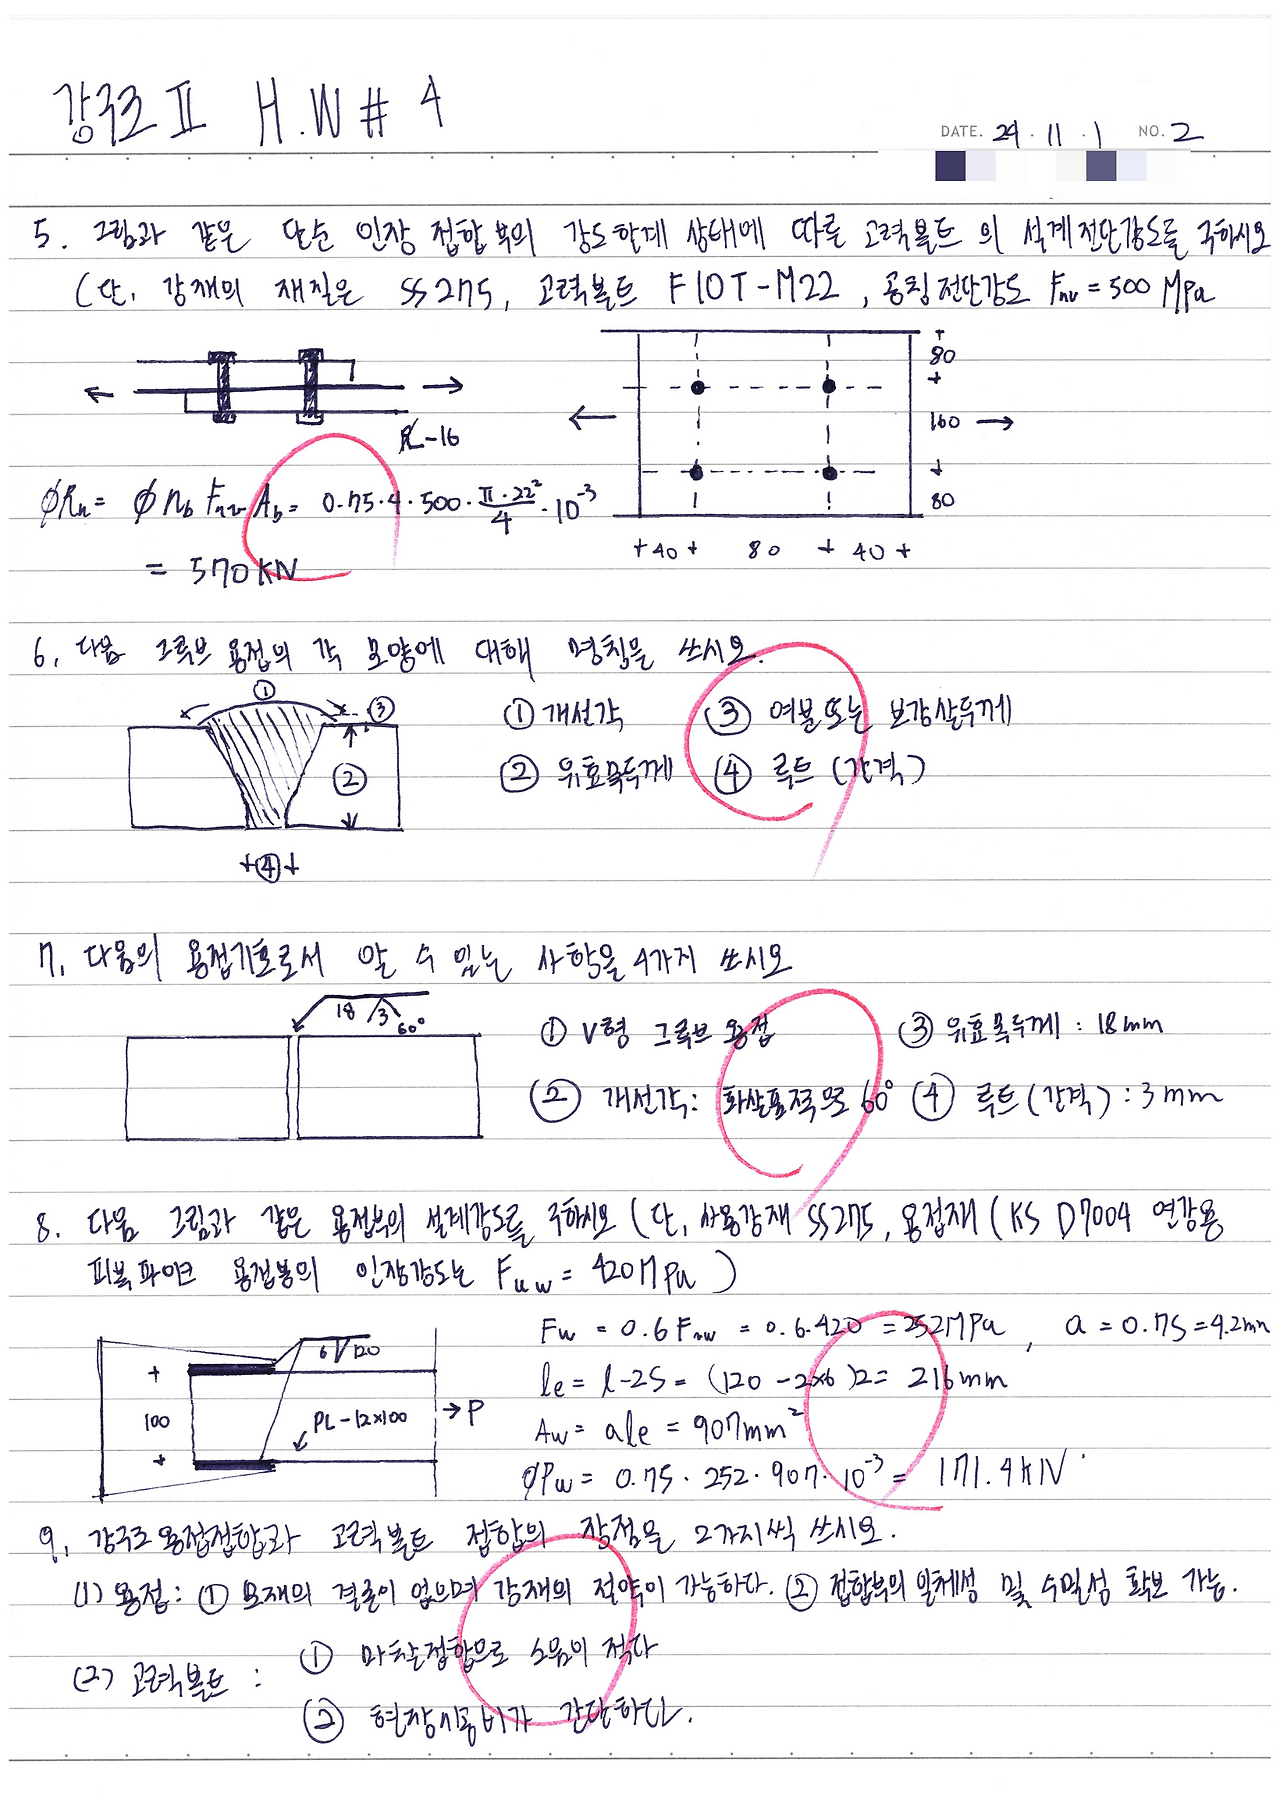 강구조 II H.W # 4
DATE. 24 . 11 . 1 NO. 2
5. 그림과 같은 단순 인장 접합부의 강도한계 상태에 따른 고력볼트의 설계전단강도를 구하시오
(단, 강재의 재질은 SS275, 고력볼트 F10T-M22, 공칭전단강도 Fnv = 500 MPa
PL-16
80
160
80
40 80 40
ΦRn = Φ nb Fnv Ab = 0.75·4·500·π·22²/4·10⁻³
= 570KN
6. 다음 그루브 용접의 각 모양에 대해 명칭을 쓰시오.
① ③
②
④
① 개선각 ③ 여분또는 보강살두께
② 유효목두께 ④ 루트 (간격)
7. 다음의 용접기호로서 알 수 있는 사항을 4가지 쓰시오
18 3 60°
① V형 그루브 용접 ③ 유효목두께 : 18mm
② 개선각: 화살표쪽으로 60° ④ 루트(간격) : 3mm
8. 다음 그림과 같은 용접부의 설계강도를 구하시오 (단, 사용강재 SS275, 용접재 (KS D7004 연강용
피복아크 용접봉의 인장강도는 Fuw = 420MPa)
6 120
100
PL-12×100
P
Fw = 0.6Fuw = 0.6·420 = 252MPa, a = 0.7S = 4.2mm
le = l-2S = (120 - 2×6)2 = 216mm
Aw = ale = 907mm²
ΦPw = 0.75·252·907·10⁻³ = 171.4KN
9. 강구조 용접접합과 고력볼트 접합의 장점을 2가지씩 쓰시오.
(1) 용접: ① 모재의 결손이 없으며 강재의 절약이 가능하다. ② 접합부의 일체성 및 수밀성 확보 가능.
(2) 고력볼트 : ① 마찰접합으로 소음이 적다
② 현장시공비가 간단하다.